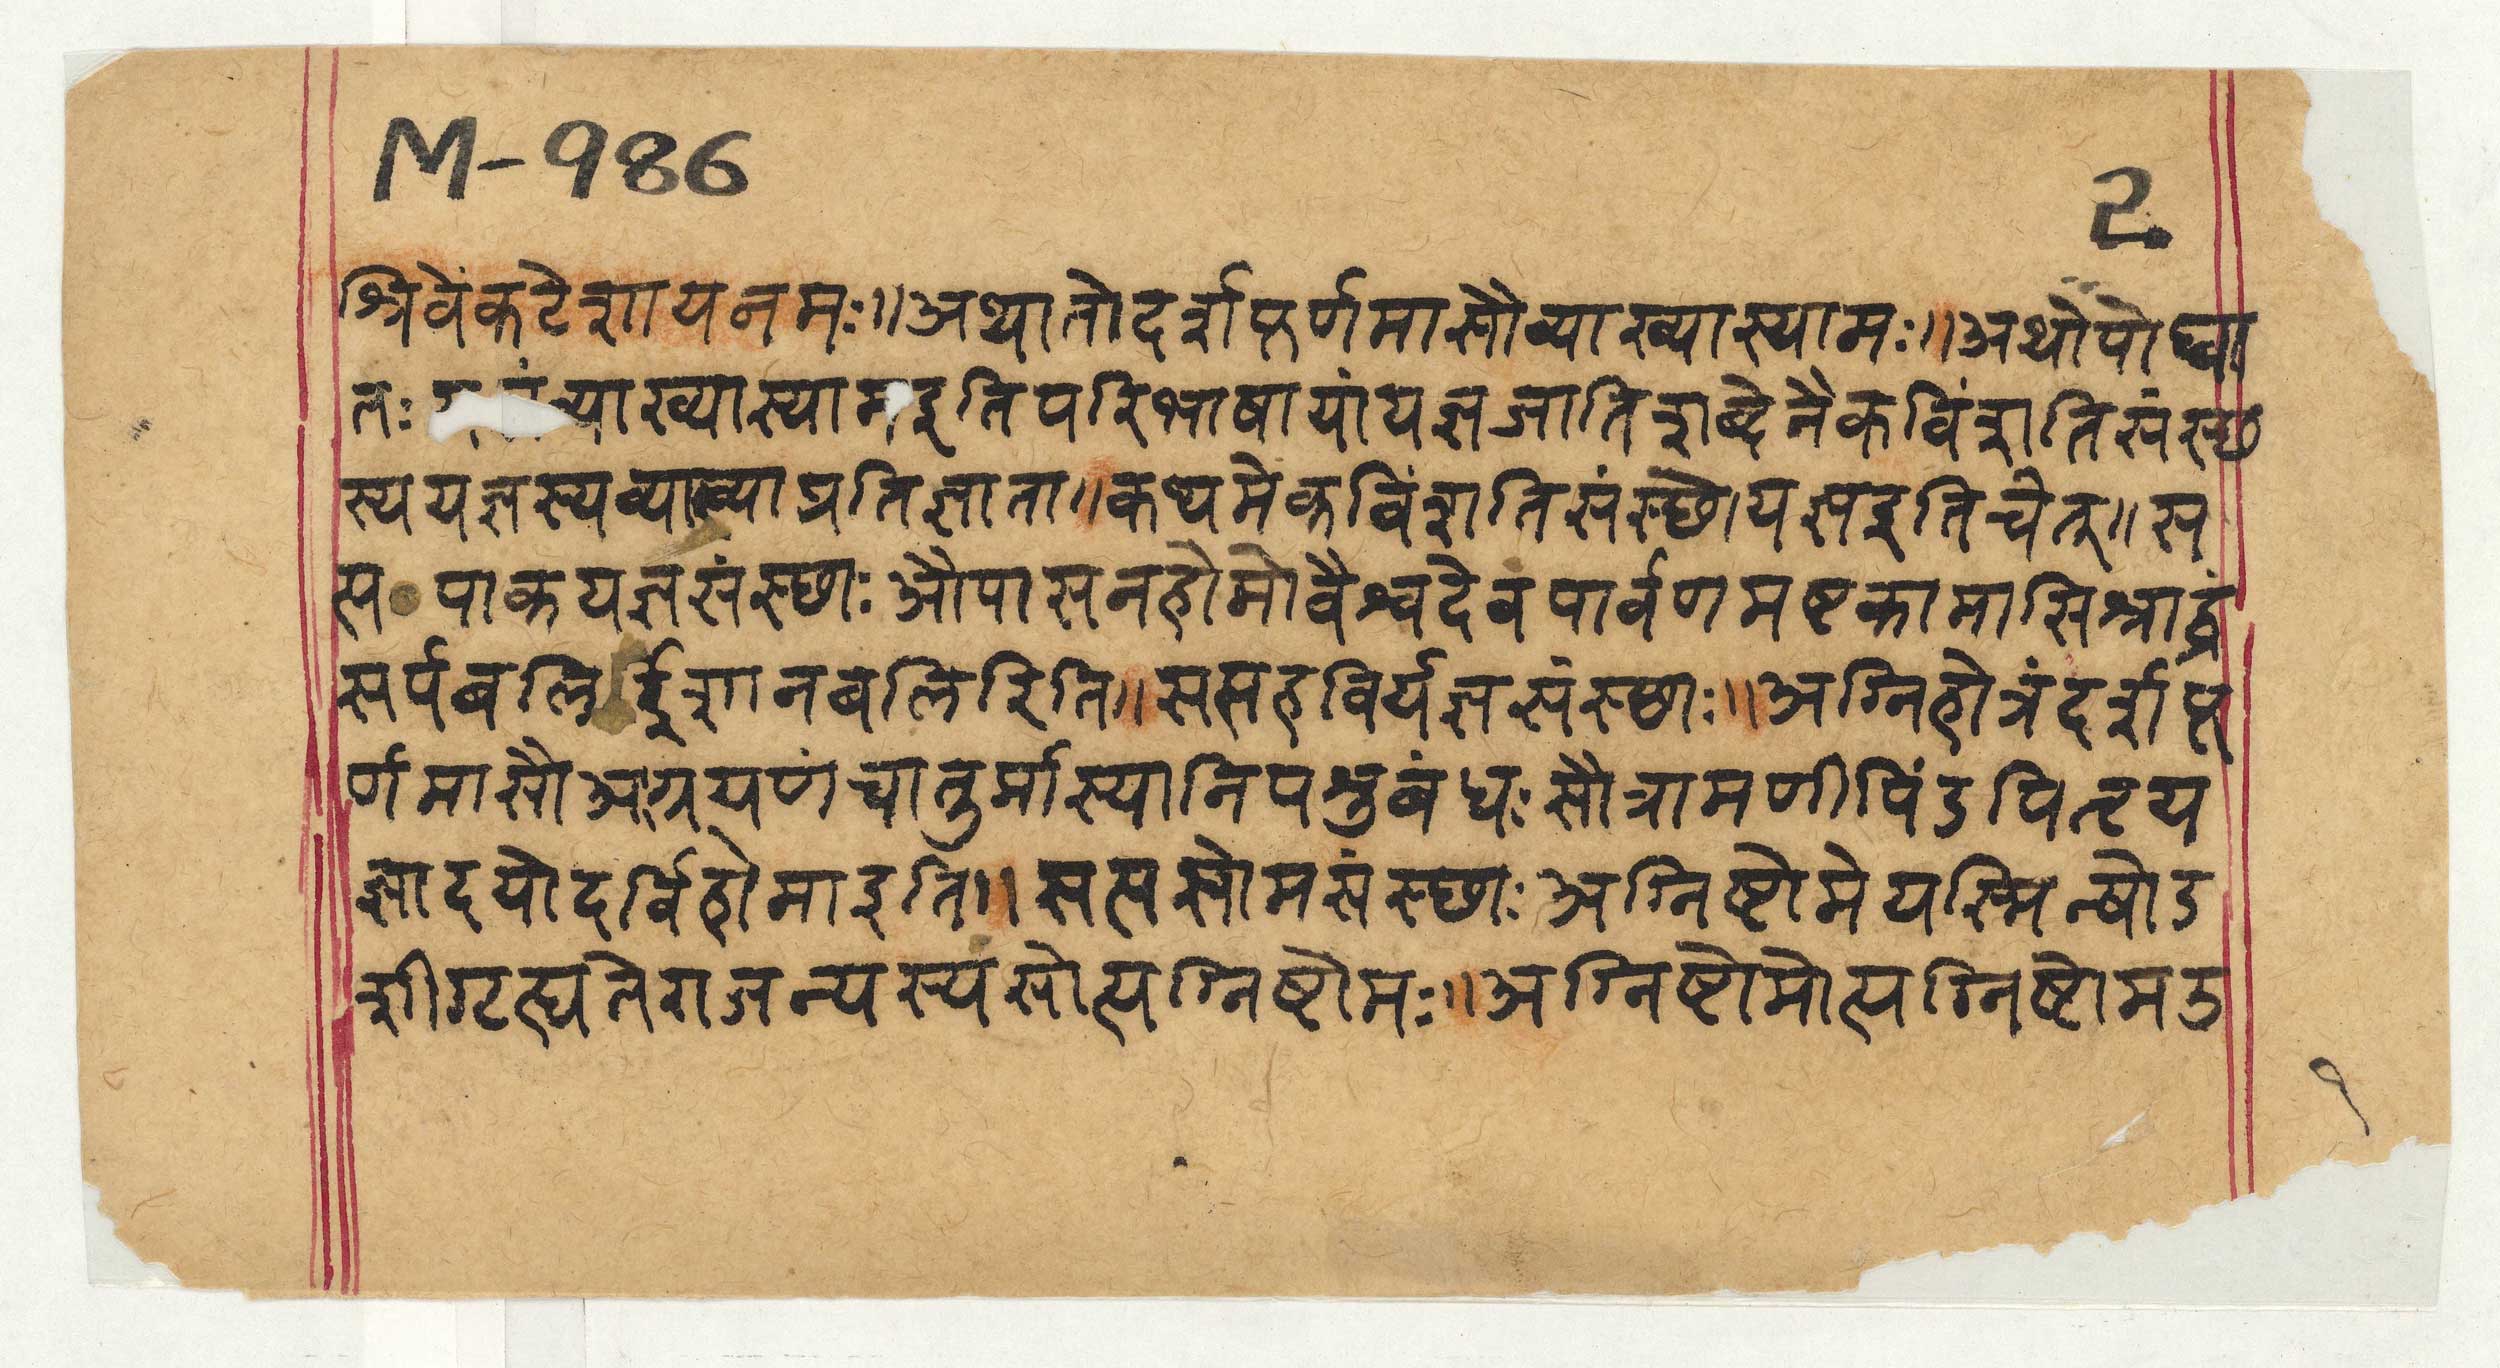 M-986
2
श्रिवेंकटेशायनमः॥अथातोदर्शपूर्णमासौव्याख्यास्यामः॥अथोपोध्घा
तः व्याख्यास्यामइतिपरिभाषायांयज्ञजातिशब्देनैकविंशतिसंस्छ
स्ययज्ञस्यव्याख्याप्रतिज्ञाता॥कथ्यमेकविंशतिसंस्छो।यज्ञइतिचेत्॥स
प्त पाकयज्ञसंस्छाः औपासनहोमोवैश्वदेवंपार्वणमष्टकामासिश्राद्धं
सर्पबलिर्ईशानबलिरिति॥सप्तहविर्यज्ञसंस्छाः॥अग्निहोत्रंदर्शपू
र्णमासौआग्रयणंचातुर्मास्यानिपशुबंधः सौत्रामणीपिंडपितृय
ज्ञादयोदर्विहोमाइति॥ सप्तसोमसंस्छाः अग्निष्टोमेयस्मिन्षोड
शीगृह्यतेराजन्यस्यंसोत्यग्निष्टोमः॥अग्निष्टोमोत्यग्निष्टोमउ
१